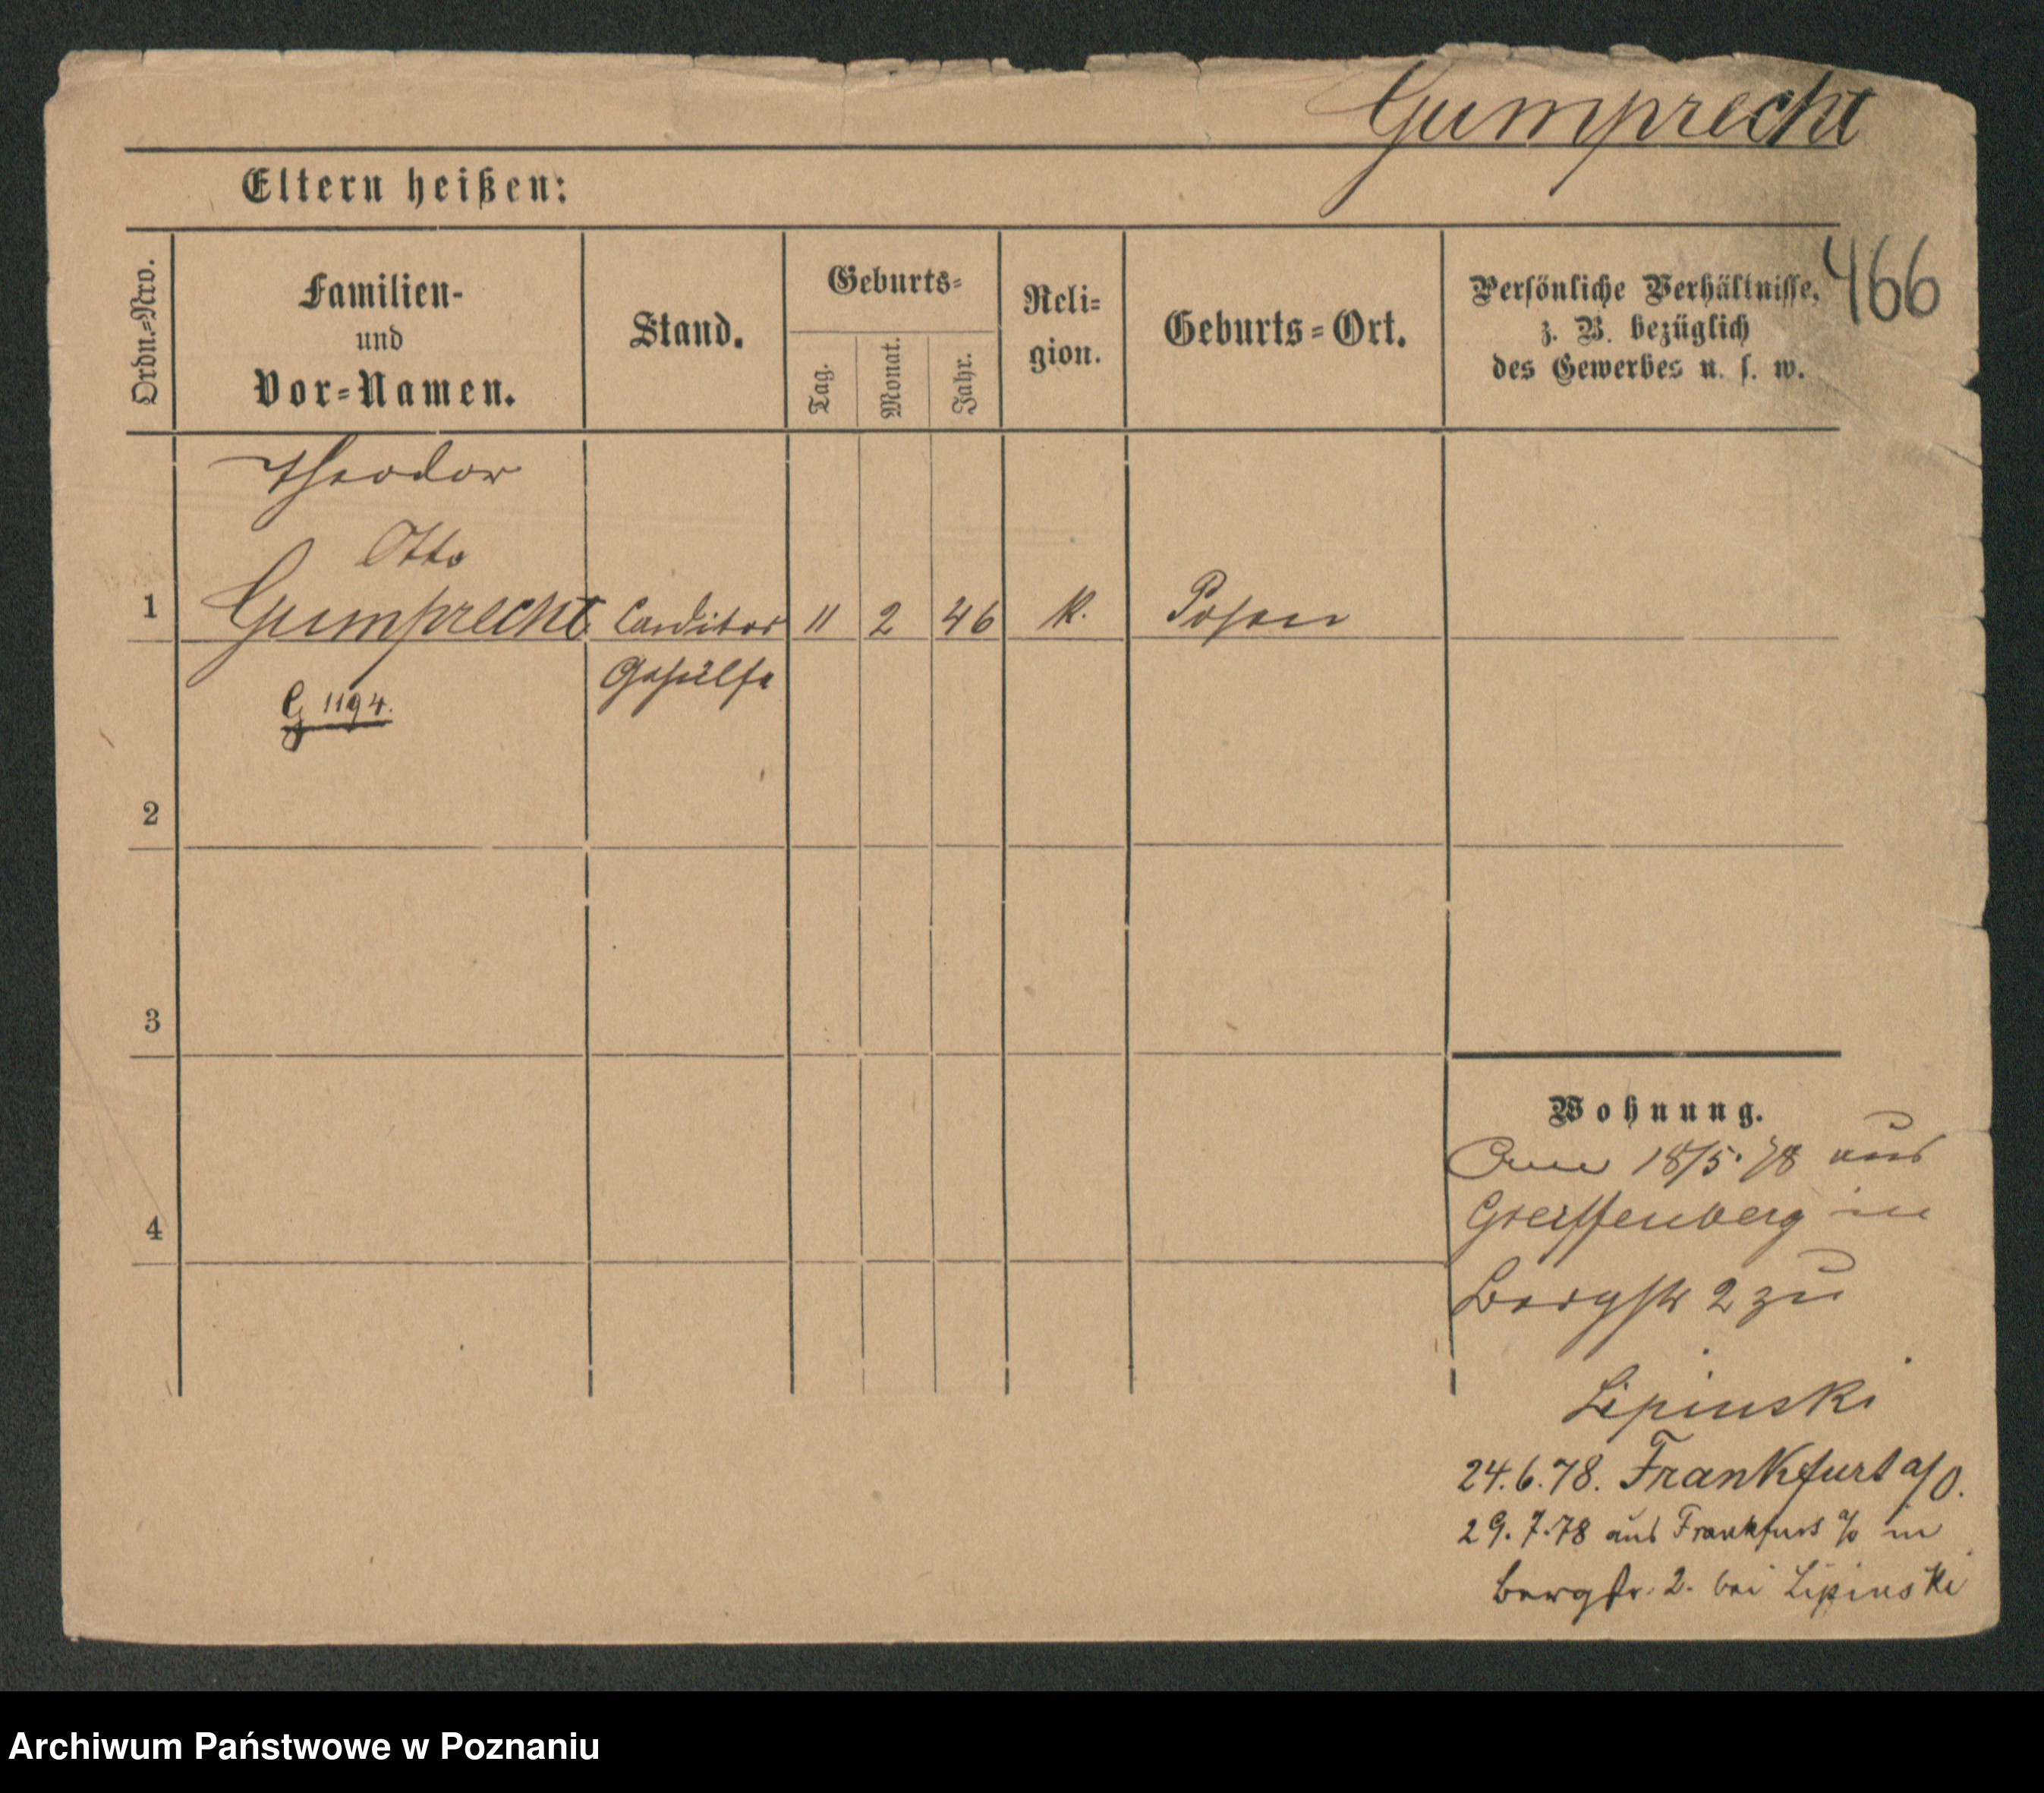 Gumprecht
Eltern heißen:
466
Ordn.=Nro.
Familien-
und
Vor=Namen.
Stand.
Geburts=
Tag.
Monat.
Jahr.
Reli=
gion.
Geburts=Ort.
Persönliche Verhältnisse,
z. B. bezüglich
des Gewerbes u. s. w.
Theodor
Otto
1 Gumprecht Conditor 11 2 46 K. Posen
Gehülfe
G 1194.
2
3
4
Wohnung.
18/5. 78 aus
Greiffenberg in
Bergstr 2 zu
Lipinski
24.6.78. Frankfurt a/O.
29.7.78 aus Frankfurt a/O in
Bergstr. 2. bei Lipinski
Archiwum Państwowe w Poznaniu